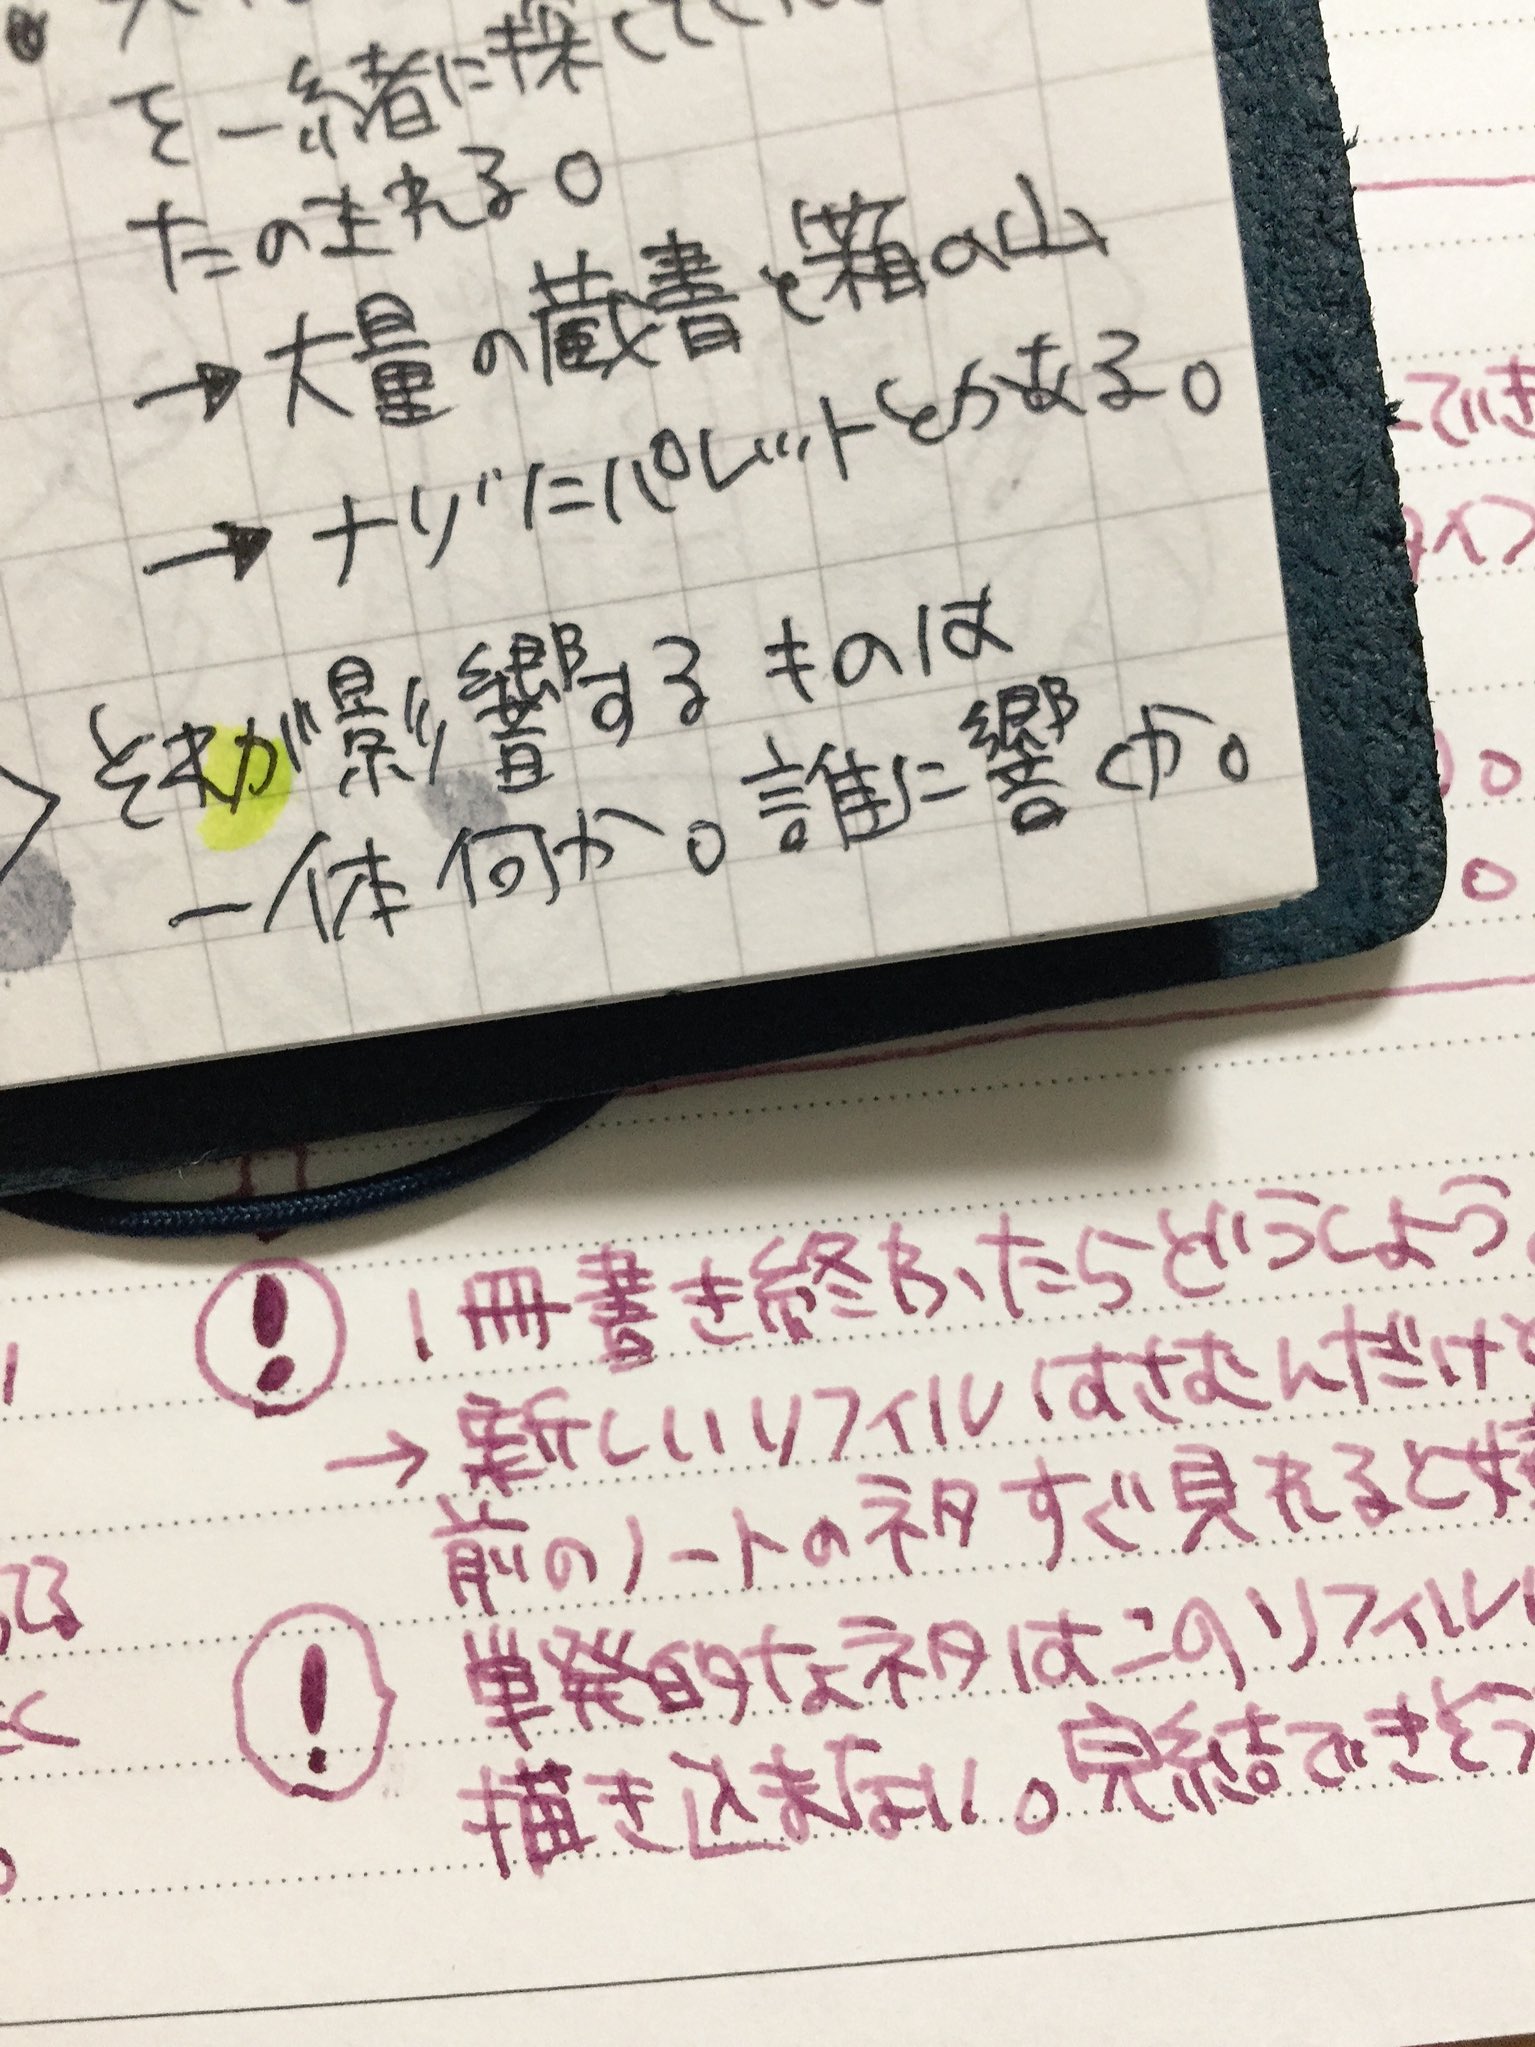 を一緒に探してくれ
たの主れる。
→大量の蔵書と箱の山
→ナゾにパレットとかある。
それが影響するものは
一体何か。誰に響くか。
でき
。
。
! 1冊書き終わったらどうしよう。
→新しいリフィルはさむんだけど
前のノートのネタすぐ見れると嬉
! 単発的なネタはこのリフィルに
描き込まない。完結できそう
てる
く